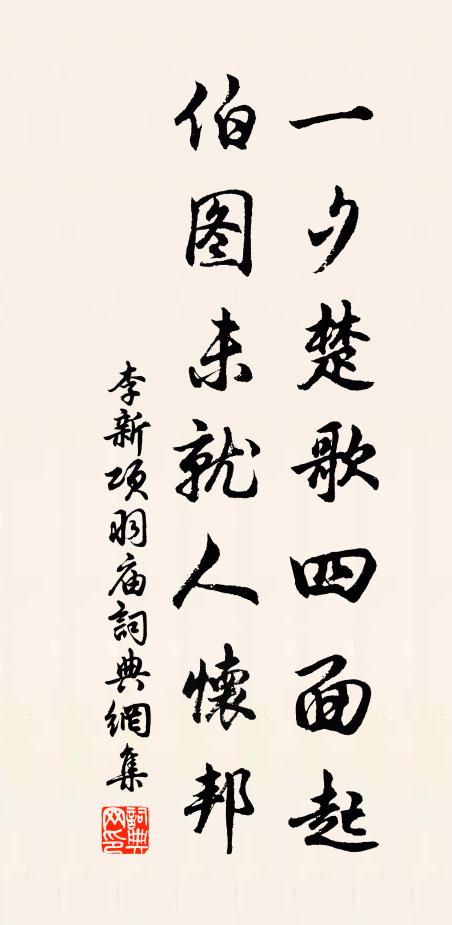 一夕楚歌四面起
伯图未就人懷邦
李新项羽庙詞典網集
詞典网印